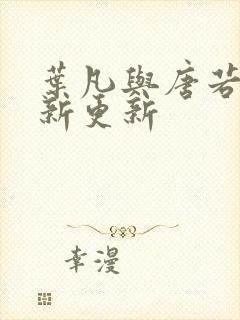 葉凡與唐若
新更新
幸漫